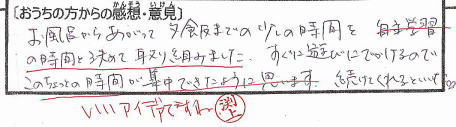 〔おうちの方からの感想・意見〕
お風呂からあがって夕食までの少しの時間を自主学習
の時間と決めて取り組みました。すぐに遊びにでかけるので
このちょっとの時間が集中できたように思います。続けてくれるといいな
いいアイデアですね 渕上